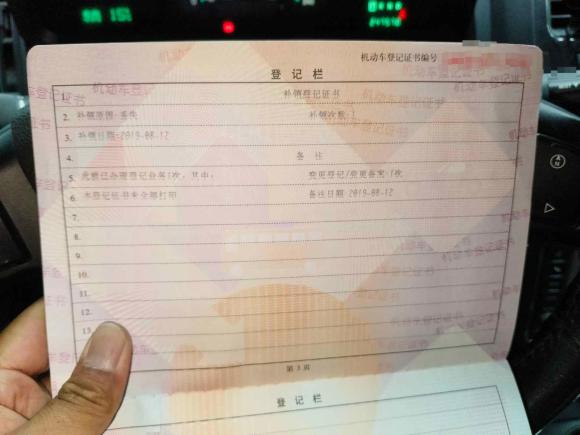 机动车登记证书编号
登记栏
1. 补领登记证书
2. 补领原因:丢失 补领次数:1
3. 补领日期:2019-08-12
4. 备注
5. 此前已办理登记业务1次，其中: 变更登记/变更备案:1次
6. 本登记证书未全部打印 备注日期:2019-08-12
7.
8.
9.
10.
11.
12.
13.
第3页
登记栏